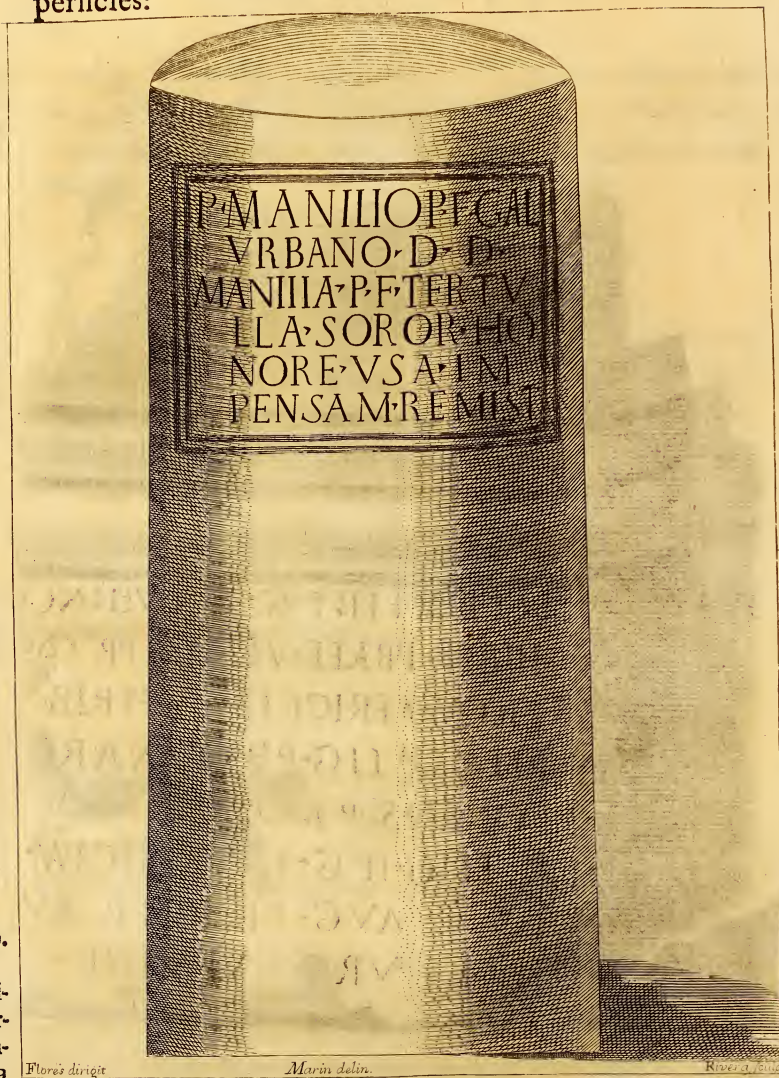 perficies:
P·MANILIO P·F·GAL
VRBANO· D· D·
MANIIIA· P· F· TERTV
LLA· SOROR· HO
NORE· VSA· IM
PENSAM· REMISI
Flores dirigit
Marin delin.
Rivera sculp